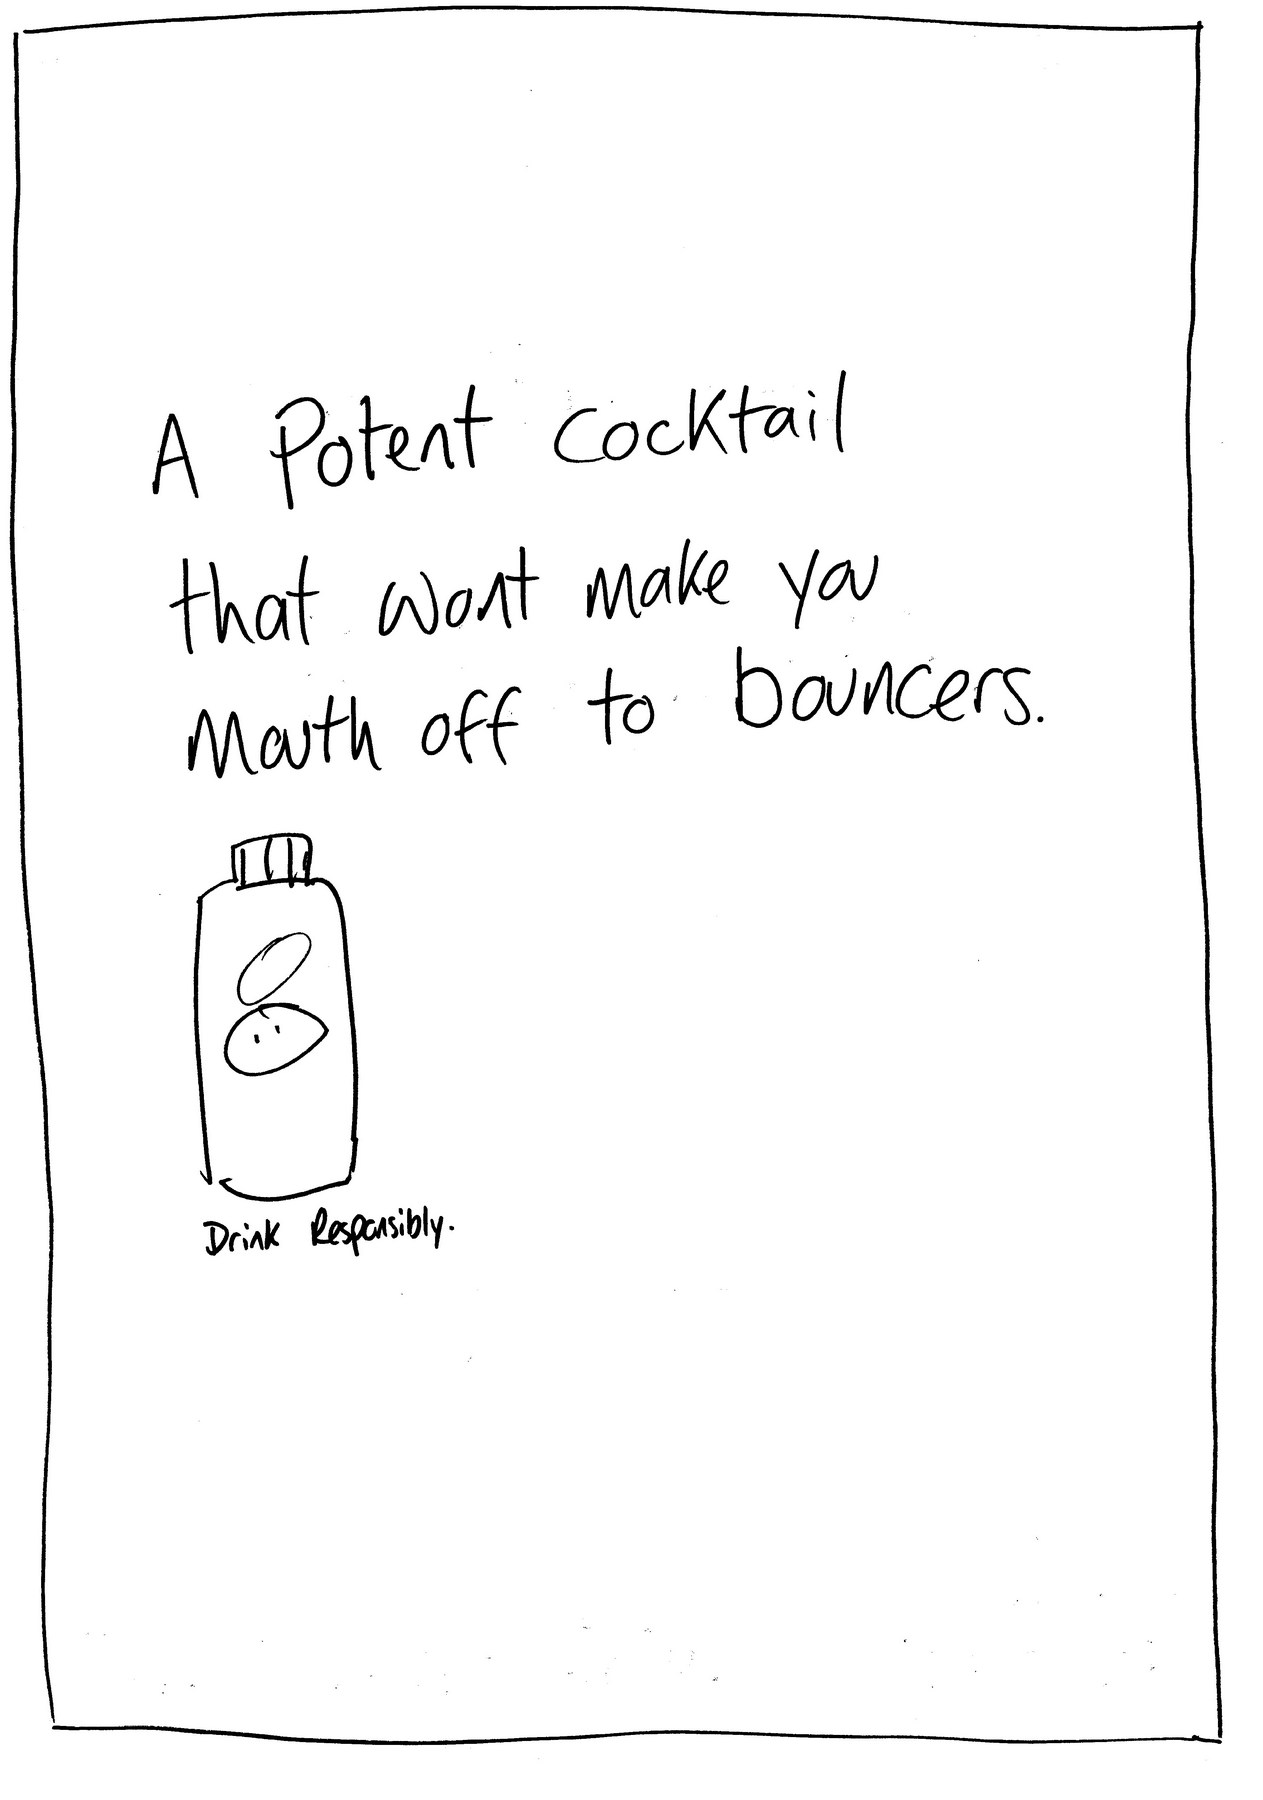 A Potent cocktail
that wont make you
Mouth off to bouncers.
Drink Responsibly.